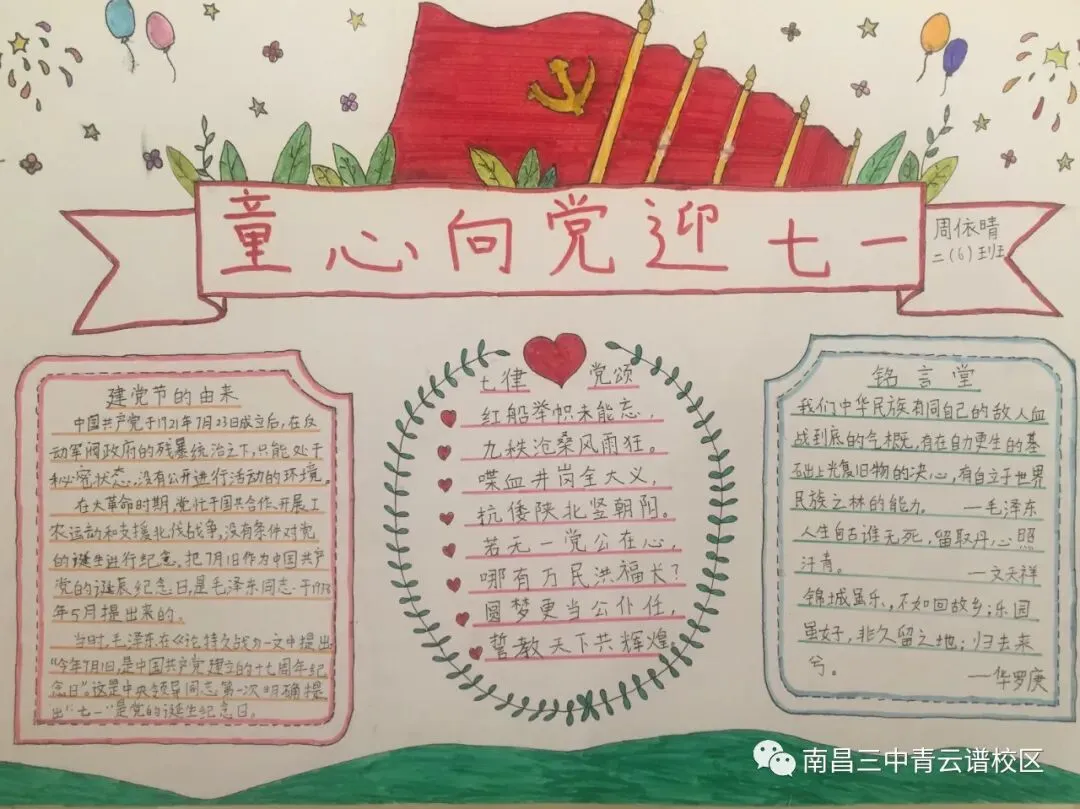 童心向党迎七一
周依晴
二(6)班
建党节的由来
中国共产党于1921年7月23日成立后,在反
动军阀政府的残暴统治之下,只能处于
秘密状态,没有公开进行活动的环境。
在大革命时期,党忙于国共合作、开展工
农运动和支援北伐战争,没有条件对党
的诞生进行纪念。把7月1日作为中国共产
党的诞辰纪念日,是毛泽东同志于1938
年5月提出来的。
当时,毛泽东在《论持久战》一文中提出
“今年7月1日,是中国共产党建立的十七周年纪
念日”。这是中央领导同志第一次明确提
出“七一”是党的诞生纪念日。
七律 党颂
红船举帜未能忘,
九秩沧桑风雨狂。
喋血井岗全大义,
抗倭陕北竖朝阳。
若无一党公在心,
哪有万民洪福长?
圆梦更当公仆任,
誓教天下共辉煌
铭言堂
我们中华民族有同自己的敌人血
战到底的气概,有在自力更生的基
础上光复旧物的决心,有自立于世界
民族之林的能力。 —毛泽东
人生自古谁无死,留取丹心照
汗青。 —文天祥
锦城虽乐,不如回故乡;乐园
虽好,非久留之地;归去来
兮。 —华罗庚
南昌三中青云谱校区